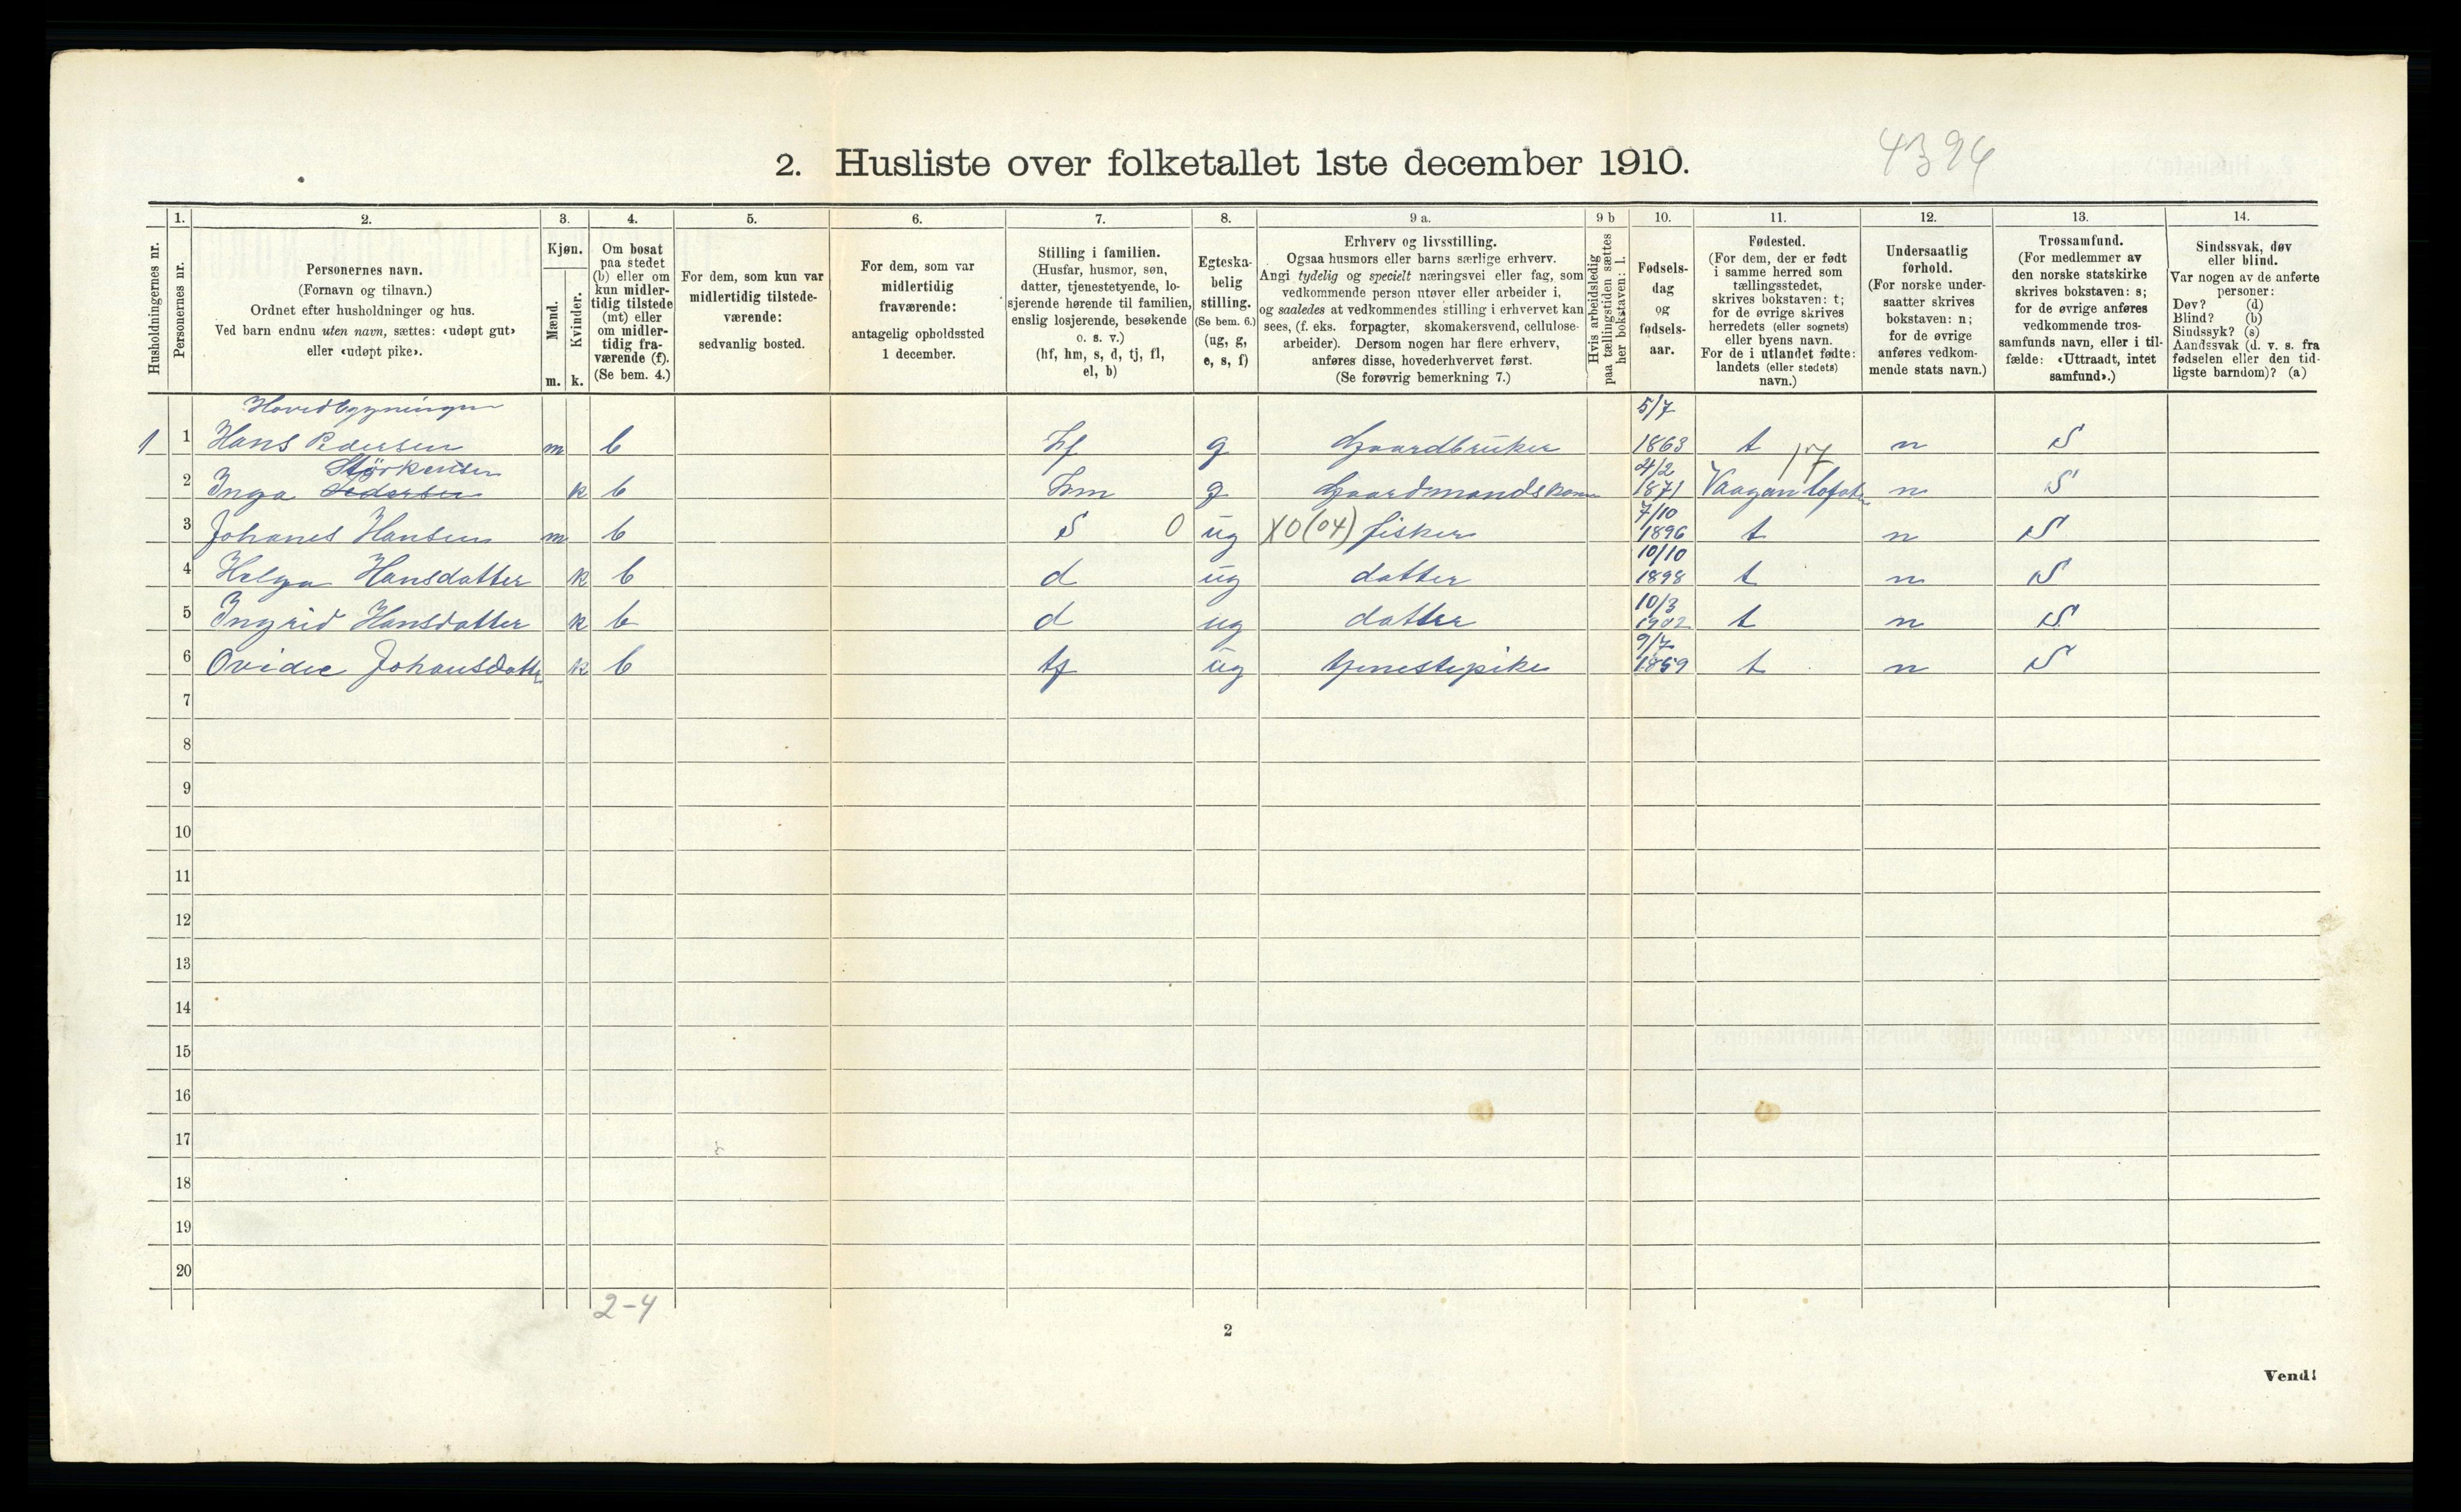 4394
2. Husliste over folketallet 1ste december 1910.
Husholdningernes nr.
1. Personernes nr.
2. Personernes navn.
(Fornavn og tilnavn.)
Ordnet efter husholdninger og hus.
Ved barn endnu uten navn, sættes: «udøpt gut»
eller «udøpt pike».
3. Kjøn.
Mænd. Kvinder.
m. k.
4. Om bosat
paa stedet
(b) eller om
kun midler-
tidig tilstede
(mt) eller
om midler-
tidig fra-
værende (f).
(Se bem. 4.)
5. For dem, som kun var
midlertidig tilstede-
værende:
sedvanlig bosted.
6. For dem, som var
midlertidig
fraværende:
antagelig opholdssted
1 december.
7. Stilling i familien.
(Husfar, husmor, søn,
datter, tjenestetyende, lo-
sjerende hørende til familien,
enslig losjerende, besøkende
o. s. v.)
(hf, hm, s, d, tj, fl,
el, b)
8. Egteska-
belig
stilling.
(Se bem. 6.)
(ug, g,
e, s, f)
9 a. Erhverv og livsstilling.
Ogsaa husmors eller barns særlige erhverv.
Angi tydelig og specielt næringsvei eller fag, som
vedkommende person utøver eller arbeider i,
og saaledes at vedkommendes stilling i erhvervet kan
sees, (f. eks. forpagter, skomakersvend, cellulose-
arbeider). Dersom nogen har flere erhverv,
anføres disse, hovederhvervet først.
(Se forøvrig bemerkning 7.)
9 b Hvis arbeidsledig
paa tællingstiden sættes
her bokstaven: l.
10. Fødsels-
dag
og
fødsels-
aar.
11. Fødested.
(For dem, der er født
i samme herred som
tællingsstedet,
skrives bokstaven: t;
for de øvrige skrives
herredets (eller sognets)
eller byens navn.
For de i utlandet fødte:
landets (eller stedets)
navn.)
12. Undersaatlig
forhold.
(For norske under-
saatter skrives
bokstaven: n;
for de øvrige
anføres vedkom-
mende stats navn.)
13. Trossamfund.
(For medlemmer av
den norske statskirke
skrives bokstaven: s;
for de øvrige anføres
vedkommende tros-
samfunds navn, eller i til-
fælde: «Uttraadt, intet
samfund».)
14. Sindssvak, døv
eller blind.
Var nogen av de anførte
personer:
Døv? (d)
Blind? (b)
Sindssyk? (s)
Aandssvak (d. v. s. fra
fødselen eller den tid-
ligste barndom)? (a)
Hovedbygningen 5/7
1 1 Hans Pedersen m b hf g Gaardbruker 1863 t n S
Störkersen 4/2 17
2 Inga Pedersen k b hm g Gaardmandskone 1871 Vaagan Lofoten n S
7/10
3 Johanes Hansen m b S 0 ug X0(04) fisker 1896 t n S
10/10
4 Helga Hansdatter k b d ug datter 1898 t n S
10/3
5 Ingrid Hansdatter k b d ug datter 1902 t n S
9/7
6 Ovidie Johansdatter k b tj ug tjenestepike 1859 t n S
7
8
9
10
11
12
13
14
15
16
17
18
19
20
2-4
2
Vend!